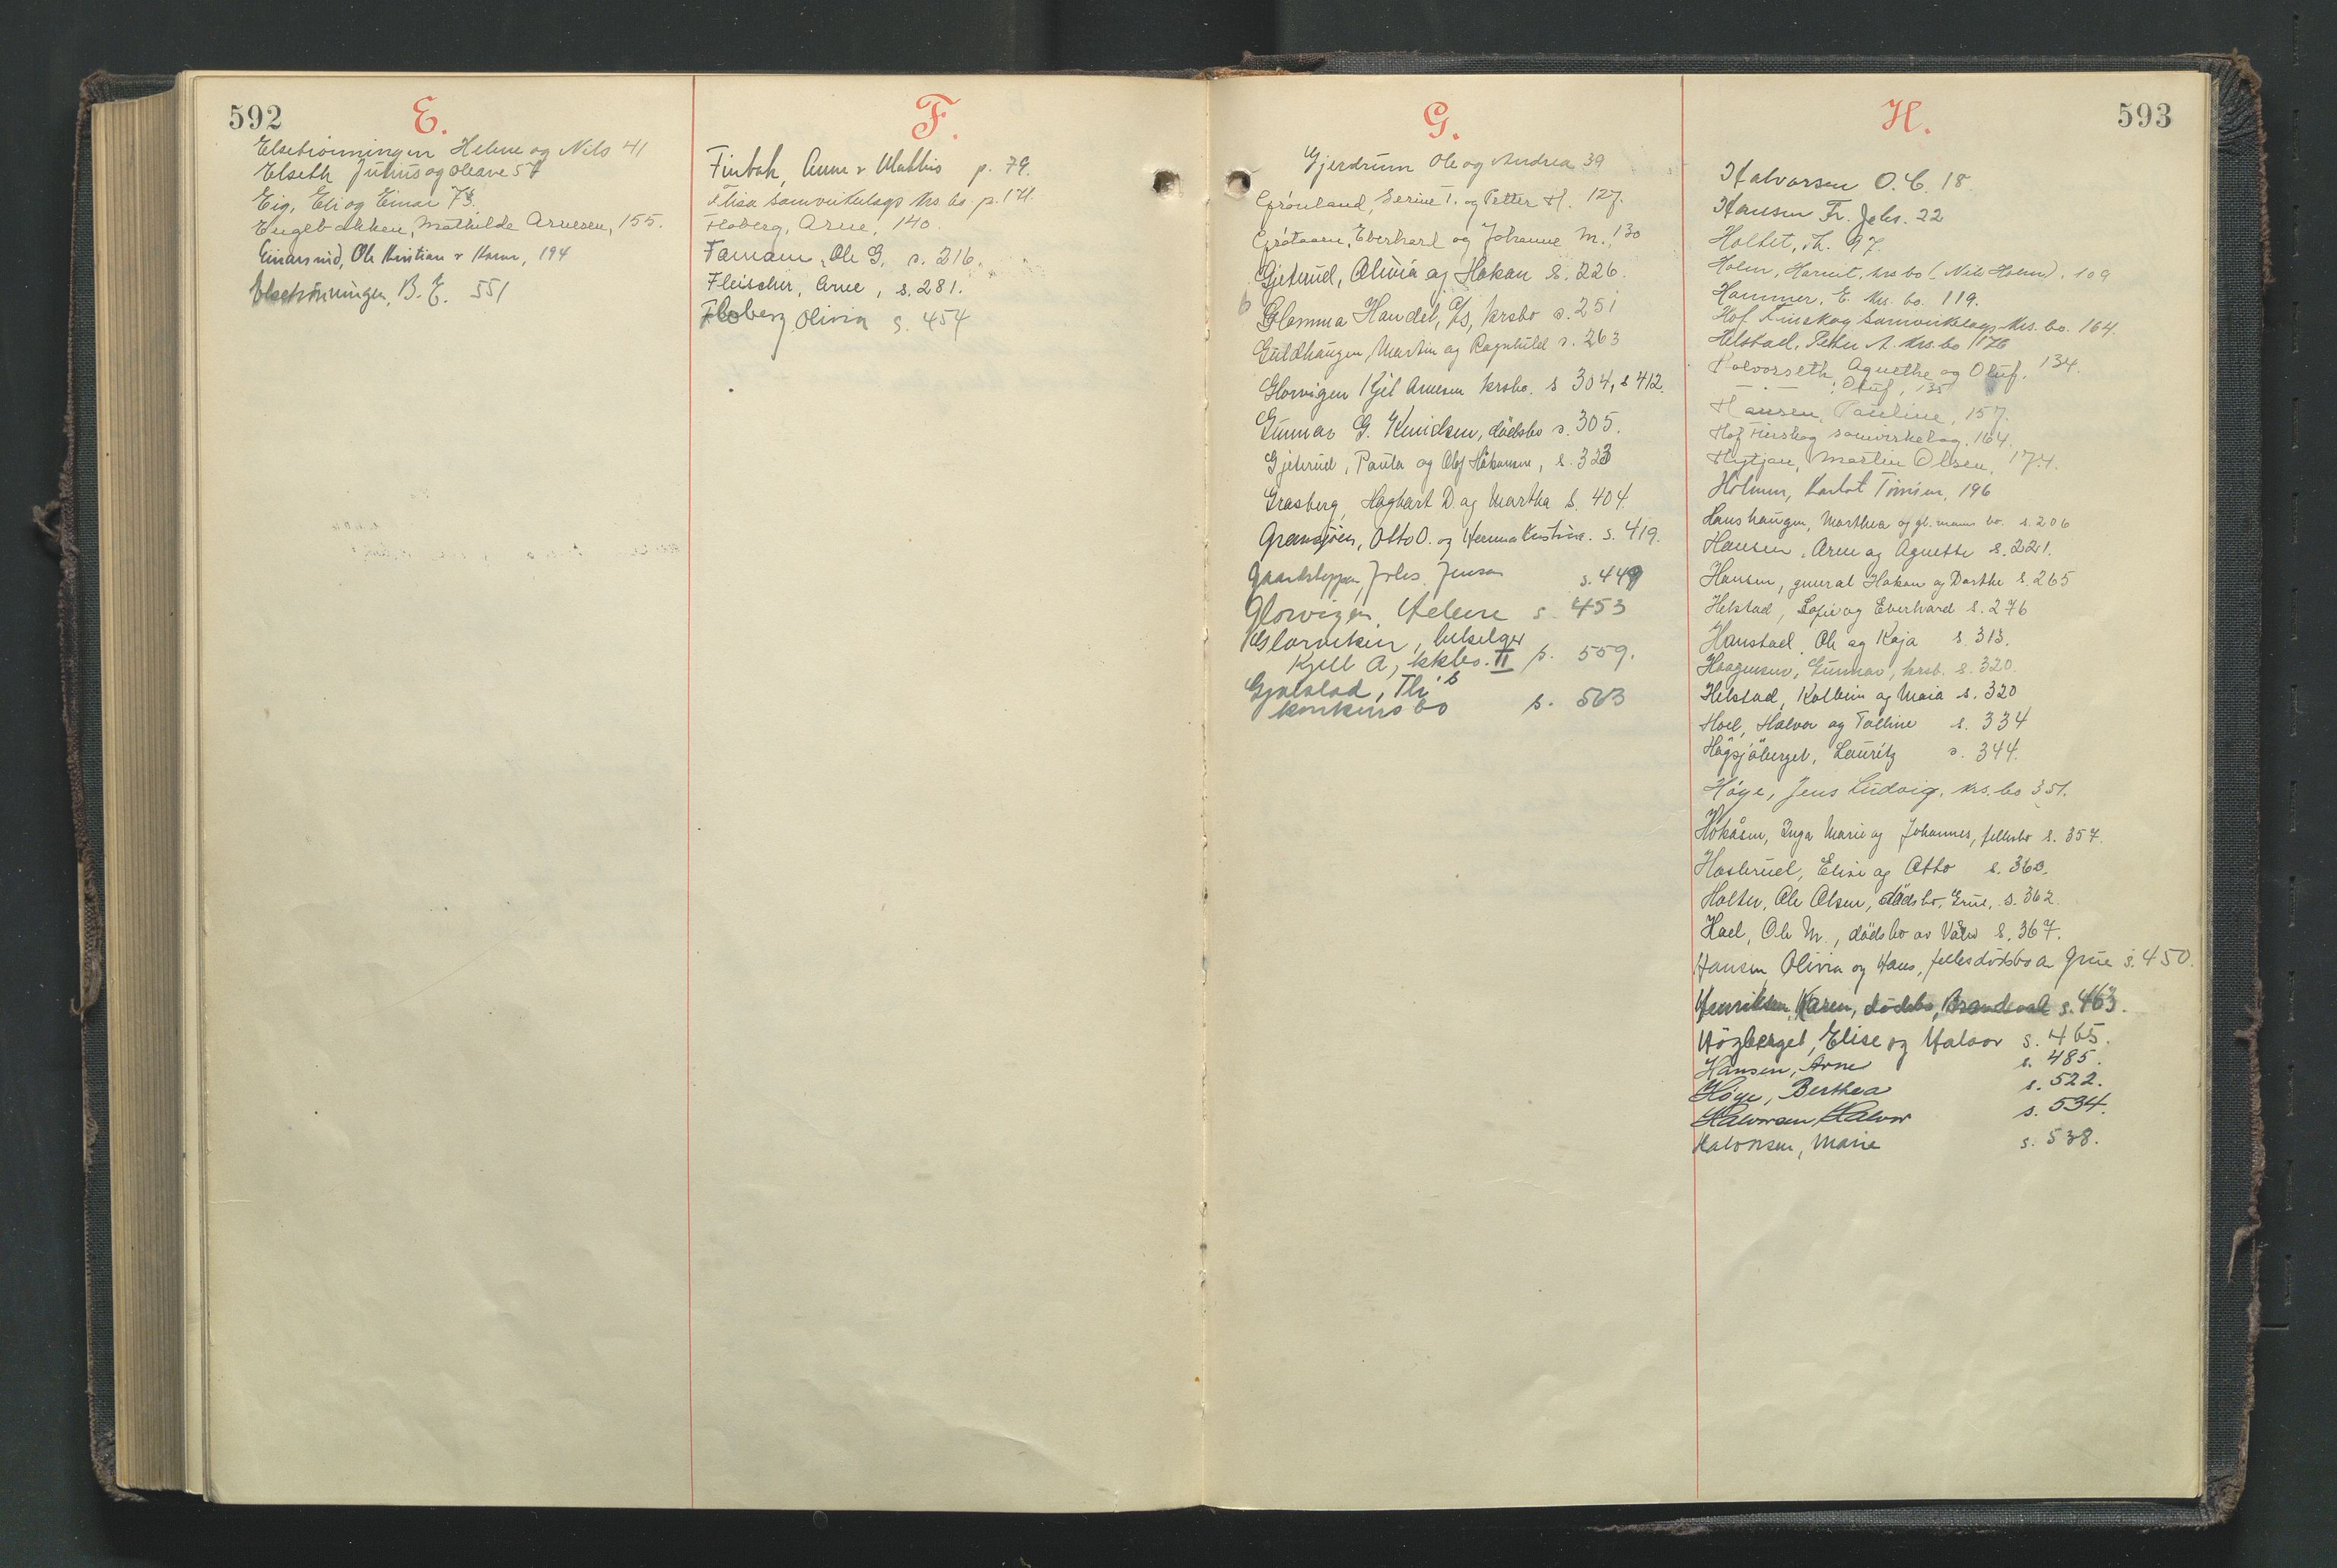 592
E.
Elsetrönningen Helene og Nils 41
Elseth Julius og Oleave 57
Eig, Eli og Einar 73.
Engebakken, Mathilde Arnesen, 155.
Einarsrud, Ole Kristian & Karen, 194
Elsetrönningen, B. E. 551
F.
Finbak, Anne & Mathis p. 79.
Flisa Samvirkelags krs. bo. p. 171.
Floberg, Arne, 140.
Ole G. s. 216.
Fleischer, Arne, s. 281.
Floberg, Olivia s. 454
G.
Gjerdrum Ole og Andrea 39
Grönland, Serine T. og Petter H. 127.
Eberhard og Johanne M., 130
Gjeterud, Olivia og Håkan s. 226.
Glomma Handel, krsbo s. 251
Guldhaugen, Martin og Ragnhild s. 263
Glorvigen Kjel Arnesen krsbo. s 304, s 412.
Gunnar G. Knudsen, dödsbo s. 305.
Gjeterud, Paula og Olof Håkansen, s. 323
Grasberg, Haghart D. og Martha s. 404.
Gransjöen, Otto O. og Kristine. s. 419.
Johs. Jensen s. 449
Glorvigen, Helene s. 453
Glorviken, hvitselger
Kjell A, kkbo. II s. 559.
Th's
konkursbo s. 563
H.
593
Halvorsen O. C. 18.
Hansen Fr. Johs. 22
Holtet, Th. 97.
Holm, krs bo (Nils Holm). 109
Hammer, E. krs. bo. 119.
Hof Finskog Samvirkelags krs. bo. 164.
Helstad, Peder A. krs. bo 176
Halvorseth, Agnethe og Oluf. 134.
— " — , Oluf, 135
Hansen, Pauline, 157.
Hof Finskog samvirkelag. 164.
Hytjan, Martin Olsen, 174.
Holmen, 196
Hanshaugen, Marthea og gl. manns bo. s. 206
Hansen, Arne og Agnethe s. 221.
Hansen, Håkan og Dorthe s. 265
Helstad, Sofie og Everhard s. 276
Hanstad, Ole og Kaja s. 313.
Haagensen, Gunnar, krsb. s. 320.
Helstad, Kolbein og Maia s. 320
Hoel, Halvor og Talline s. 334
Högsjöberget, Lauritz s. 344.
Höye, Jens Ludvig, krs. bo 351.
Hokåsen, Inga Marie og Johannes, fellesbo s. 357.
Hasterud, Elise og Otto s. 360.
Holter, Ole Olsen, dödsbo, Grue, s. 362.
Hoel, Ole M., dödsbo av Våler s. 367.
Hansen Olivia og Hans, felles dödsbo av Grue s. 450.
Henriksen, Karen, dödsbo, Brandval s. 463.
Högberget, Elise og Halvor s. 465.
Hansen, Arne s. 485.
Höye, Berthea s. 522.
Halvorsen Halvor s. 534.
Halvorsen, Marie s. 538.